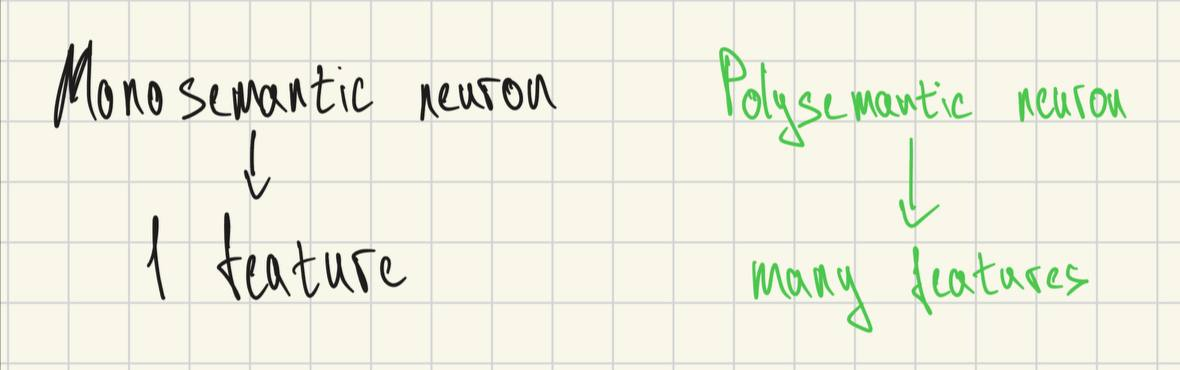 Monosemantic neuron
↓
1 feature
Polysemantic neuron
↓
many features